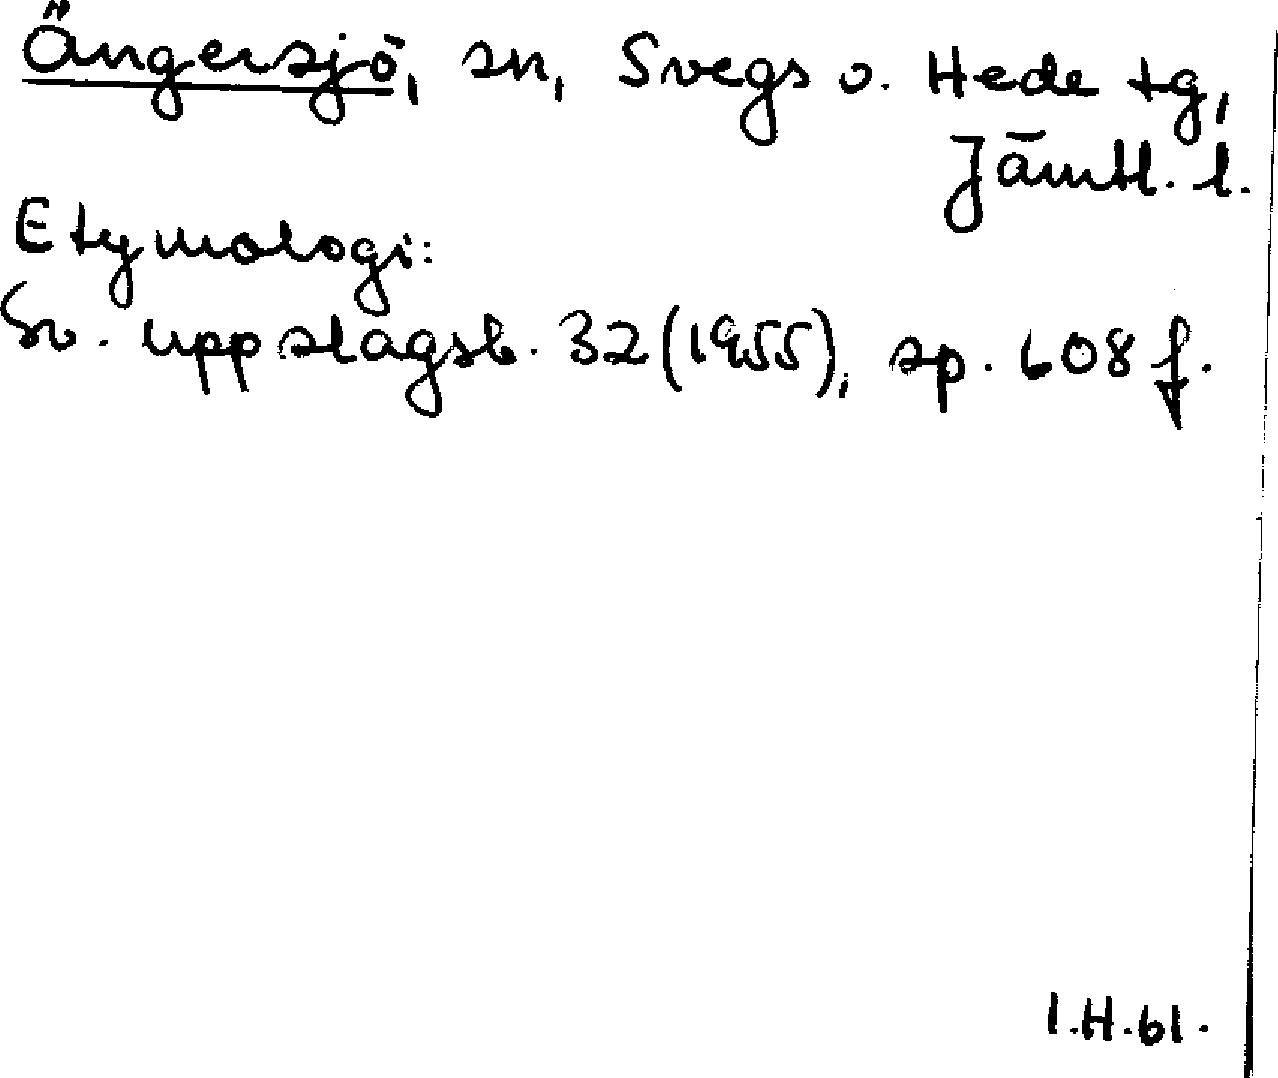 Ängersjö, sn, Svegs o. Hede tg,
Jämtl. l.
Etymologi:
Sv. uppslagsb. 32 (1955), sp. 608 f.
I.H.61.